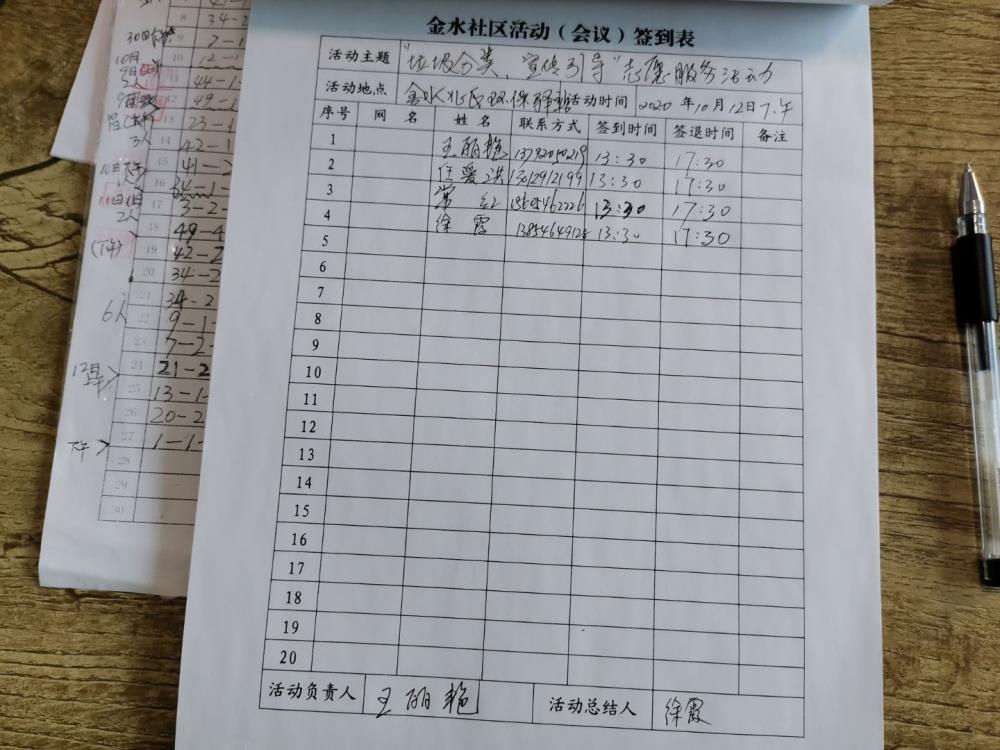 金水社区活动（会议）签到表
活动主题 "垃圾分类、宣传引导"志愿服务活动
活动地点 金水 活动时间 2020 年10月12日下午
序号 网 名 姓 名 联系方式 签到时间 签退时间 备注
1 王丽艳 13:30 17:30
2 13012912199 13:30 17:30
3 常 红 13:30 17:30
4 徐 霞 13:30 17:30
5
6
7
8
9
10
11
12
13
14
15
16
17
18
19
20
活动负责人 王丽艳 活动总结人 徐霞
8 34-2
9 2-1
10 12-1
44-1
49-1
13 23-1
14 42-1
15 41-2
16 34-1-
17 3-2-
18 49-4
19 42-2
20 34-2
21 34-2
22 9-1-
23 7-2-
24 21-2
25 13-1-
26 20-2
27 1-1-
28
29
30
10月
3人
2人
(下午)
6人
下午